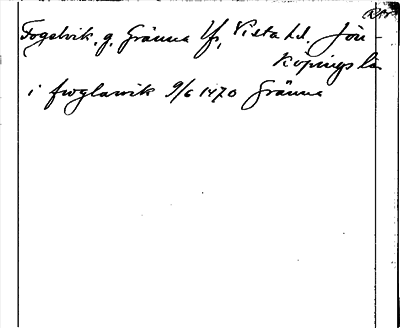 Fogelvik, g. Gränna lfs, Vista hd. Jön-
köpings län
i ffoglawik 9/6 1470 Gränna